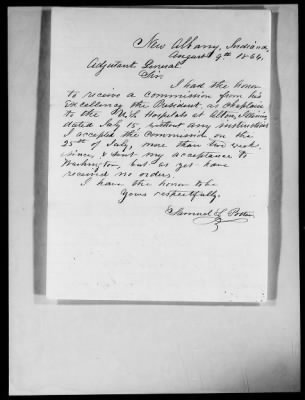 New Albany, Indiana,
August 9th 1864.
Adjutant General.
Sir
I had the honor
to receive a commission from his
Excellency the President, as chaplain
to the U.S. Hospitals at Alton, Illinois
dated July 15, without any instructions
I accepted the Commission on the
25th of July, more than two weeks
since, & sent my acceptance to
Washington, but as yet have
received no orders.
I have the honor to be
Yours respectfully.
Samuel